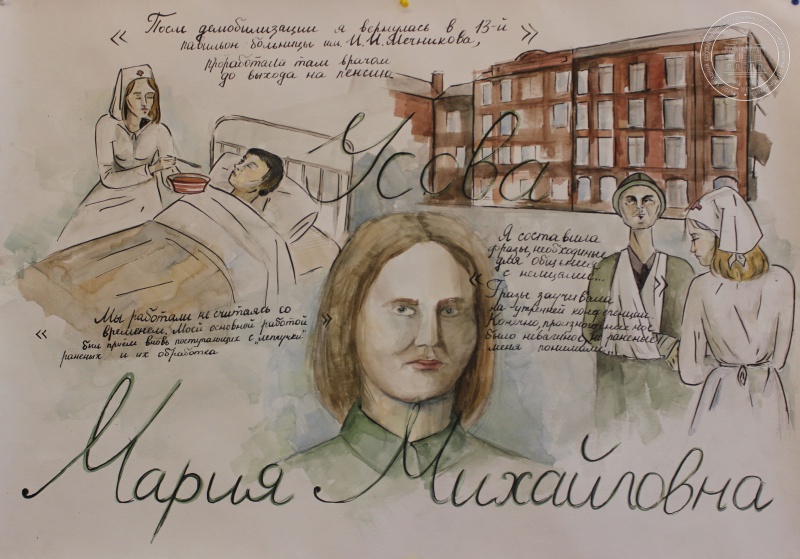 « После демобилизации я вернулась в 13-й
павильон больницы им. И.И. Мечникова,
проработала там врачом
до выхода на пенсию
Усова
Я составила
фразы, необходимые
для общения
с немцами...
« Фразы заучивали »
на утренней конференции.
Конечно, произношение у нас
было неважное, но раненые
меня понимали...
Мы работали не считаясь со
« временем. Моей основной работой »
был приём вновь поступающих с „летучей"
раненых и их обработка
Мария Михайловна